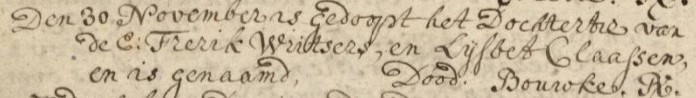 Den 30 November is gedoopt het Dochtertie van
de E: Frerik Writsers, en Lysbet Claassen,
en is genaamd, Dood. Bouwke.